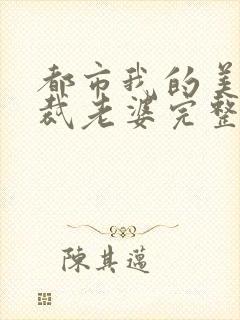 都市我的美
裁老婆完整
陳其邁